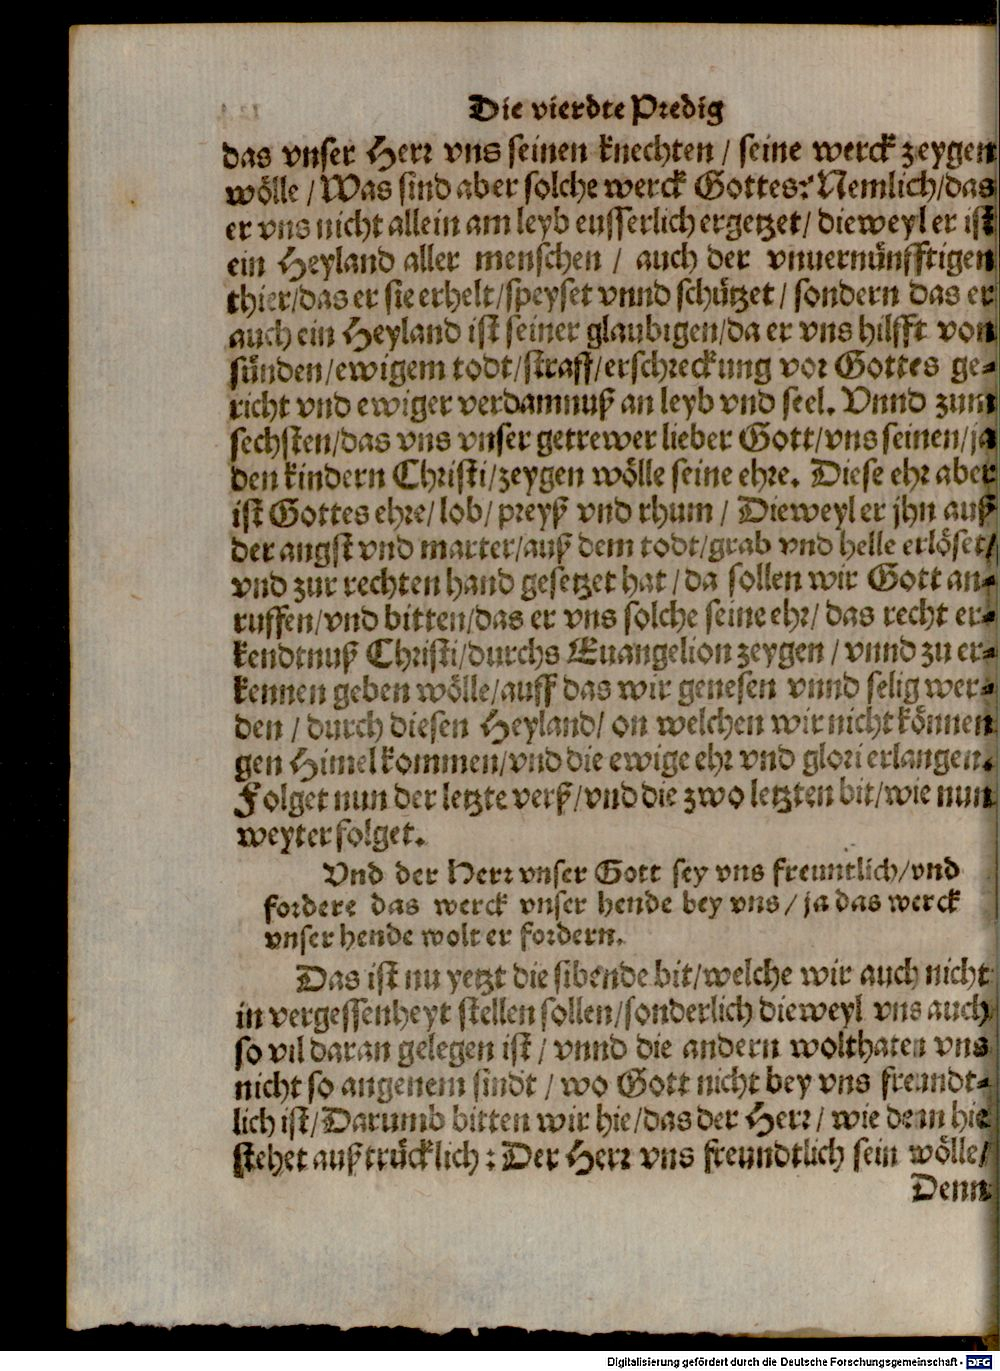 Die vierdte Predig
das vnser Herr vns seinen knechten / seine werck zeygen
wölle / Was sind aber solche werck Gottes? Nemlich/das
er vns nicht allein am leyb eusserlich ergetzet/ dieweyl er ist
ein Heyland aller menschen / auch der vnuernünfftigen
thier/das er sie erhelt/speyset vnnd schützet / sondern das er
auch ein Heyland ist seiner glaubigen/da er vns hilfft von
sünden/ewigem todt/straff/erschreckung vor Gottes ge-
richt vnd ewiger verdamnuß an leyb vnd seel. Vnnd zum
sechsten/das vns vnser getrewer lieber Gott/vns seinen/ja
den kindern Christi/zeygen wölle seine ehre. Diese ehr aber
ist Gottes ehre/ lob/ preyß vnd rhum / Dieweyl er jhn auß
der angst vnd marter/auß dem todt/grab vnd helle erlöset/
vnd zur rechten hand gesetzet hat / da sollen wir Gott an-
ruffen/vnd bitten/das er vns solche seine ehr/ das recht er-
kendtnuß Christi/durchs Euangelion zeygen / vnnd zu er-
kennen geben wölle/auff das wir genesen vnnd selig wer-
den / durch diesen Heyland/ on welchen wir nicht können
gen Himel kommen/vnd die ewige ehr vnd glori erlangen.
Folget nun der letzte verß/vnd die zwo letzten bit/wie nun
weyter folget.
Vnd der Herr vnser Gott sey vns freuntlich/vnd
fordere das werck vnser hende bey vns / ja das werck
vnser hende wolt er fordern.
Das ist nu yetzt die sibende bit/welche wir auch nicht
in vergessenheyt stellen sollen/sonderlich dieweyl vns auch
so vil daran gelegen ist / vnnd die andern wolthaten vns
nicht so angenem sindt / wo Gott nicht bey vns freundt-
lich ist/Darumb bitten wir hie/das der Herr / wie denn hie
stehet außtrücklich: Der Herr vns freundtlich sein wölle/
Denn
Digitalisierung gefördert durch die Deutsche Forschungsgemeinschaft - DFG